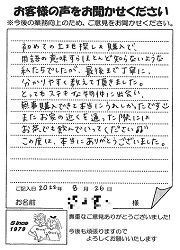 お客様の声をお聞かせください
※今後の業務向上のため、ご意見をお聞かせください。
初めての土地探しと購入で、
用語の意味すらほとんど知らないような
私たちでしたが、最後まで丁寧に、
分かりやすく教えて頂きました。
とってもステキな物件に出会い、
無事購入でき本当にうれしかったです♡
またお家の近くを通った際には
お茶でも飲んでいってくださいね
この度は、本当にありがとうございました。
ご記入日 2022年 8月 26日
お名前 様
Since
1979
貴重なご意見ありがとうございました!
今後も頑張りますので
よろしくお願いいたします